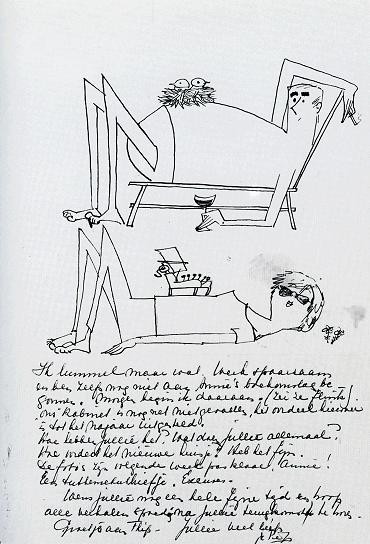 Ik lummel maar wat. Werk spaarzaam
en ben zelfs nog niet aan Annie's boekomslag be-
gonnen. Morgen begin ik daaraan. (Zei ze flink)!
Ons kabinet is nog net niet gevallen, het onderling
is tot het najaar uitgesteld.
Hoe hebben jullie het? Wat doen jullie allemaal?
Hoe wordt het nieuwe huisje? Heb het fijn.
De foto's zijn volgende week pas klaar, Annie!
Een briefje. Excuses.
Wens jullie nog een hele fijne tijd en hoop
alle verhalen spoedig na jullie terugkomst te horen.
Groetjes aan Flip. Jullie veel liefs